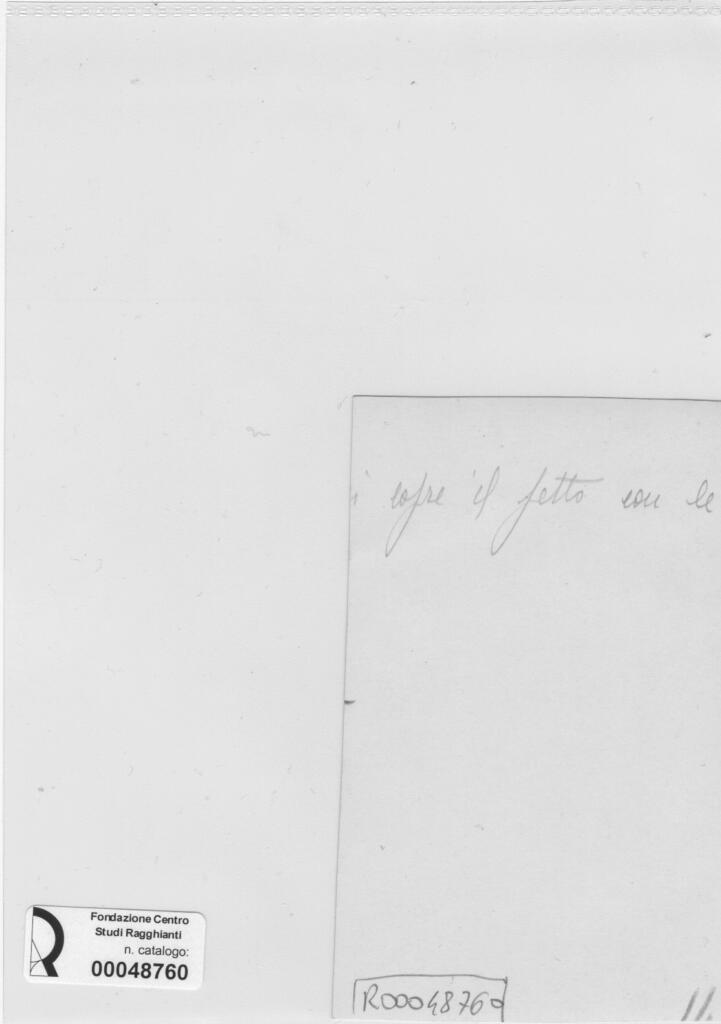 i copre il petto con le
Fondazione Centro
Studi Ragghianti
n. catalogo:
00048760
R00048760
11.